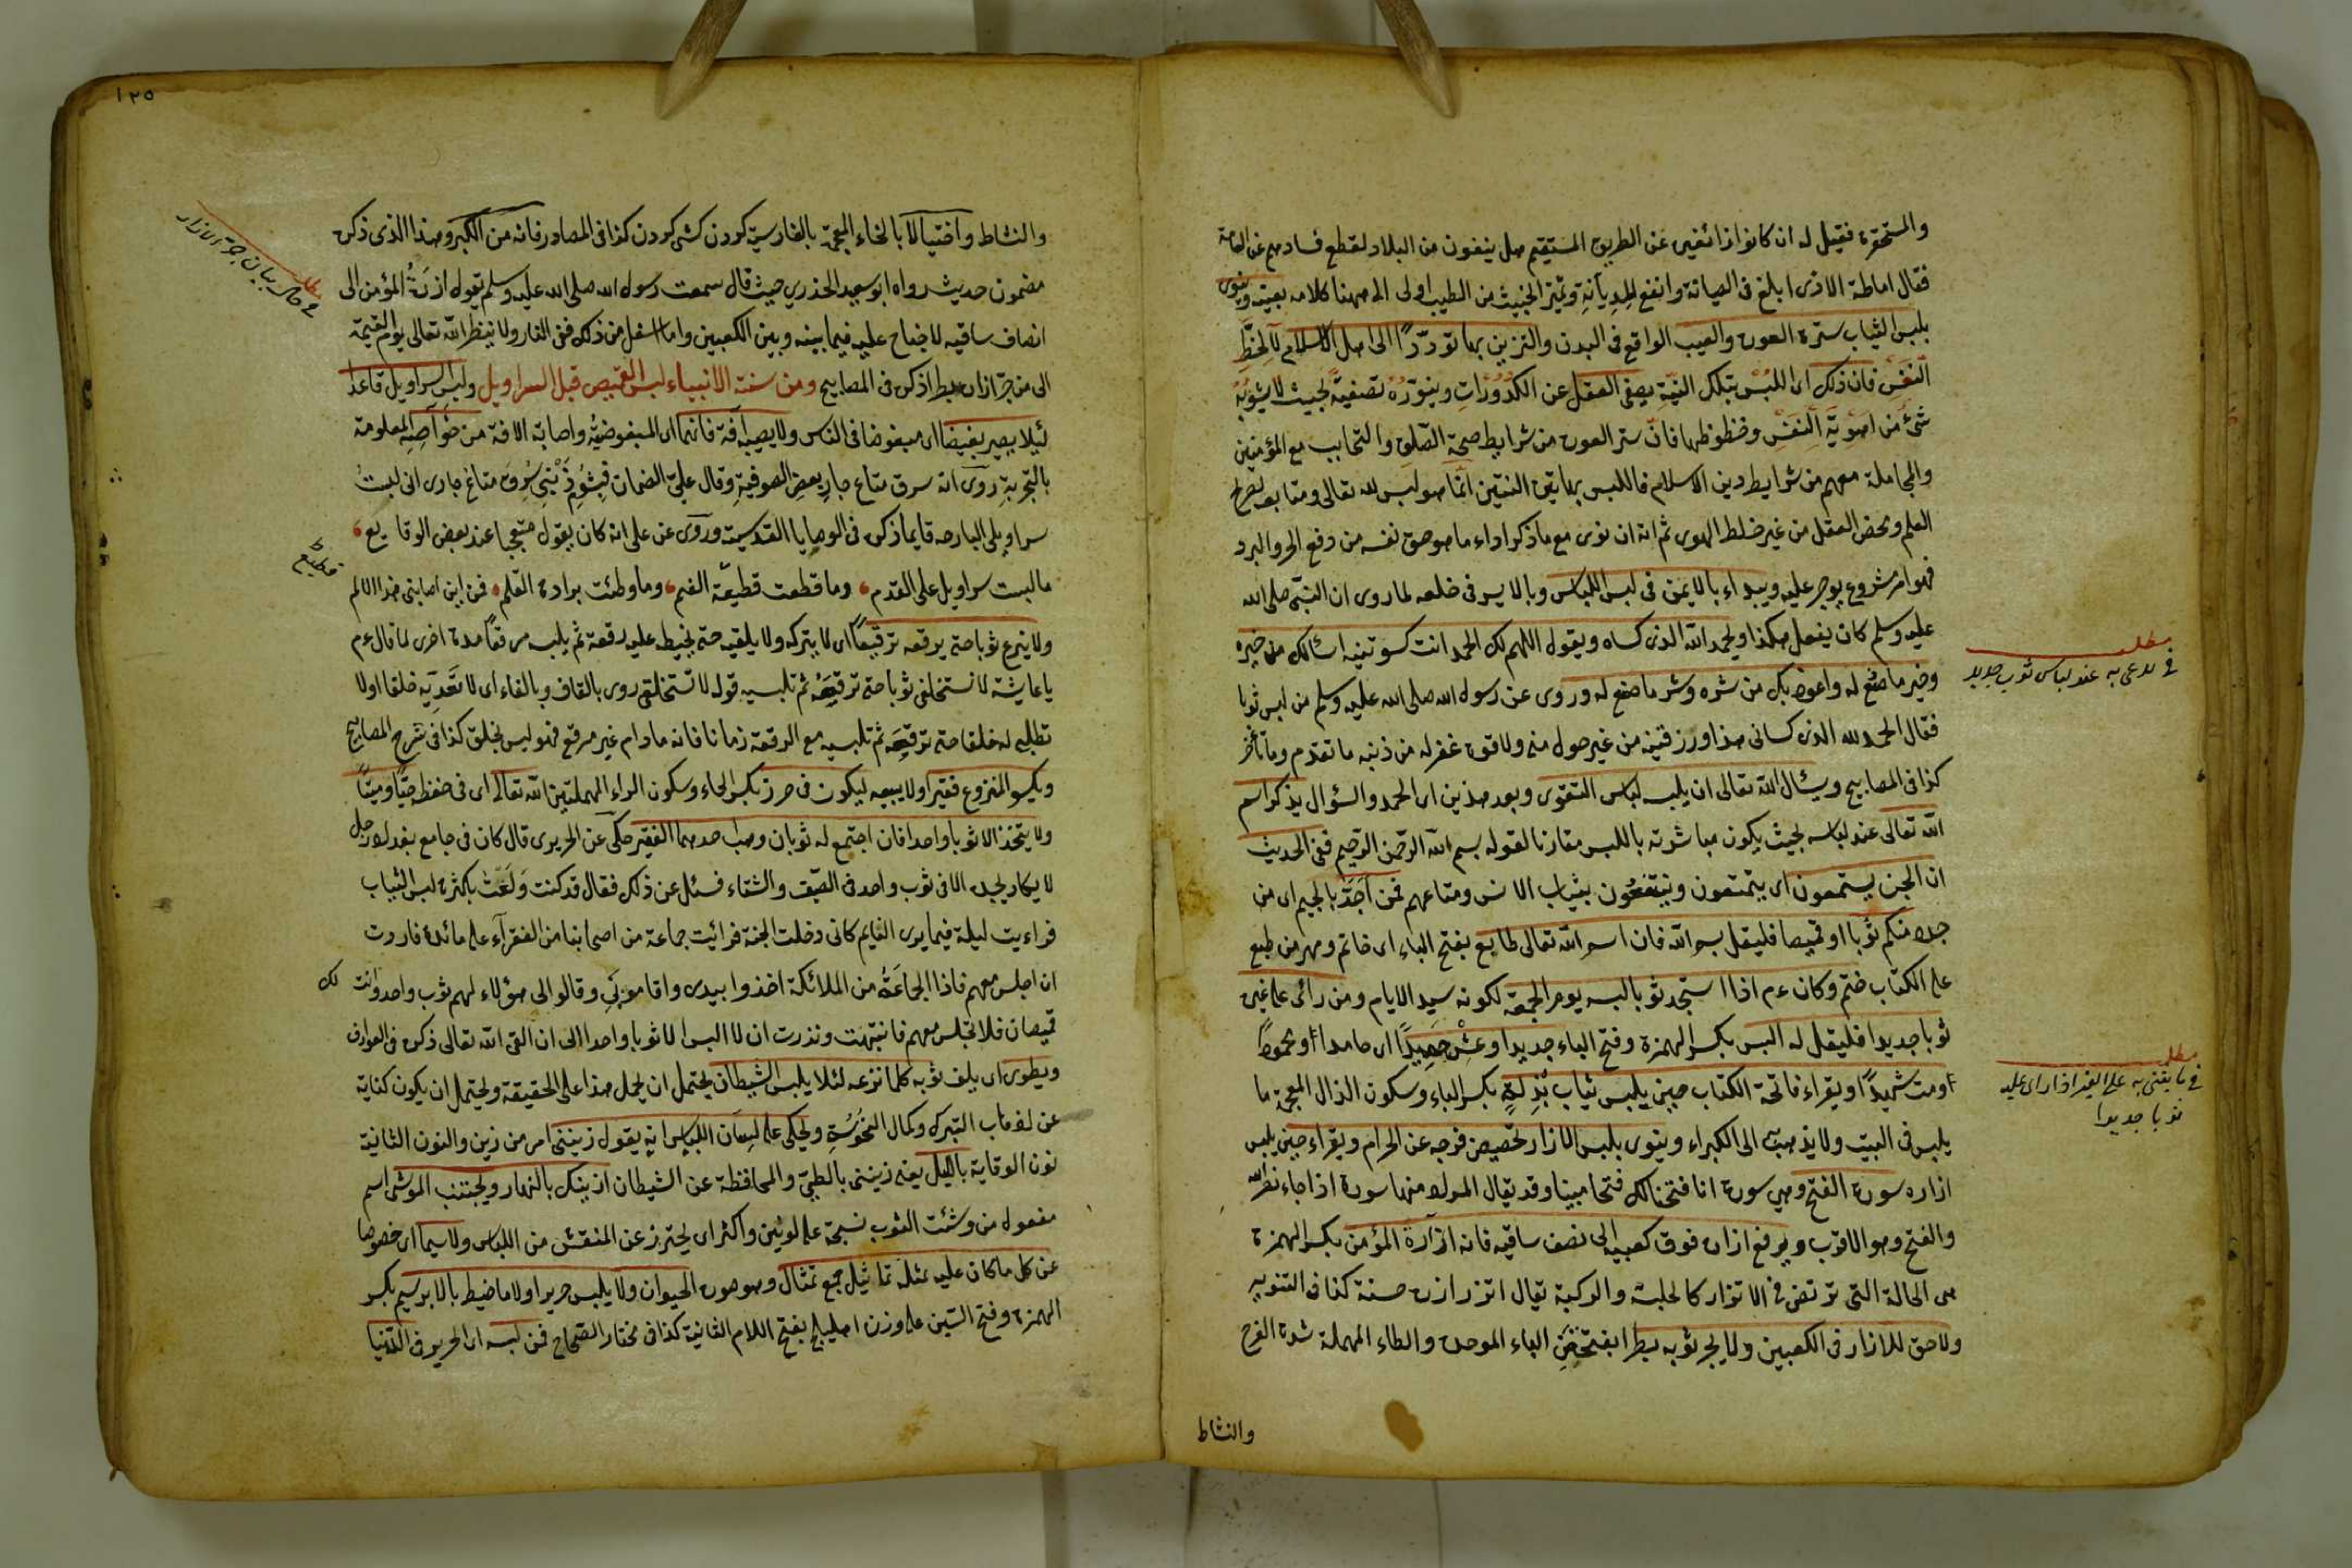 والمستحقرة فقيل له ان كانوا زائغين عن الطريق المستقيم هل ينفون من البلاد لقطع فسادهم عن العامة
فقال اماطة الاذى ابلغ فى الصيانة وانفع للديانة وتميز الخبيث من الطيب اولى الى ههنا كلامه بعينه وينوى
بلبس الثياب سترة العورة والعيب الواقع فى البدن والتزين بها توددا الى اهل الاسلام لا لحظ
النفس فان ذلك اى اللبس بتلك النية يصفى العقل عن الكدورات وينوره تصفية بحيث لا يشوبه
شئ من اهوية النفس وحظوظها فان ستر العورة من شرايط صحة الصلوة والتحابب مع المؤمنين
والمجاملة معهم من شرايط دين الاسلام فاللبس بهاتين النيتين انما هو لبس لله تعالى ومتابعة لصريح
العلم ومحض العقل من غير خلط الهوى ثم انه ان نوى مع ما ذكر اداء ما هو حق نفسه من دفع الحر والبرد
فهو امر مشروع يوجر عليه ويبداء بالايمن فى لبس اللباس وبالايسر فى خلعه لما روى ان النبى صلى الله
عليه وسلم كان يفعل هكذا ويحمد الله الذى كساه ويقول اللهم لك الحمد انت كسوتنيه اسئالك من خيره
وخير ما صنع له واعوذ بك من شره وشر ما صنع له وروى عن رسول الله صلى الله عليه وسلم من لبس ثوبا
فقال الحمد لله الذى كسانى هذا ورزقنيه من غير حول منى ولا قوة غفر له من ذنبه ما تقدم وما تأخر
كذا فى المصابيح ويسئال الله تعالى ان يلبسه لباس التقوى وبعد هذين اى الحمد والسؤال يذكر اسم
الله تعالى عند لباسه بحيث يكون مباشرته باللبس مقارنا لقوله بسم الله الرحمن الرحيم ففى الحديث
ان الجن يستمعون اى يتمتعون وينتفعون بثياب الانس ومتاعهم فمن اجد بالجيم اى من
جدد منكم ثوبا او قميصا فليقل بسم الله فان اسم الله تعالى طابع بفتح الباء اى خاتم ومهر من طبع
على الكتاب ختم وكان ءم اذا استجد ثوبا لبسه يوم الجمعة لكونه سيد الايام ومن رائى على غيره
ثوبا جديدا فليقل له البس بكسر الهمزة وفتح الباء جديدا وعش حميدا اى حامدا او محمودا
ومت شهيدا ويقراء فاتحة الكتاب حين يلبس ثياب بذلة بكسر الباء وسكون الذال المعجمة ما
يلبس فى البيت ولا يذهب به الى الكبراء وينوى بلبس الازار تحصين فرجه عن الحرام ويقراء حين يلبس
ازاره سورة الفتح وهى سورة انا فتحنا لك فتحا مبينا وقد يقال المراد منها سورة اذا جاء نصر الله
والفتح وهو الاقرب ويرفع ازاره فوق كعبيه الى نصف ساقيه فانه ازرة المؤمن بكسر الهمزة
هى الحالة التى ترتضى فى الاتزار كالجلسة والركبة يقال اتزر ازرة حسنة كذا فى التنوير
ولا حق للازار فى الكعبين ولا يجر ثوبه بطرا بفتحتين الباء الموحدة والطاء المهملة شدة الفرح
والنشاط
مطلب
فى ما يدعى به عند لباس ثوب جديد
مطلب
فى ما يقنى به على الغير اذا راى عليه
ثوبا جديدا
١٢٥
والنشاط واختيالا بالخاء المعجمة بالفارسية كردن كشى كردن كذا فى المصادر فانه من الكبر وهذا الذى ذكره
مضمون حديث رواه ابو سعيد الخذري حيث قال سمعت رسول الله صلى الله عليه وسلم يقول ازرة المؤمن الى
انصاف ساقيه لا جناح عليه فيما بينه وبين الكعبين واما اسفل من ذلك ففى النار ولا ينظر الله تعالى يوم القيمة
الى من جر ازاره بطرا ذكره فى المصابيح ومن سنة الانبياء لبس القميص قبل السراويل ولبس السراويل قاعدا
لئلا يصير بغيضا اى مبغوضا فى الناس ولا يصيبه آفة فانهما اى المبغوضية واصابة الافة من خواصه المعلومة
بالتجربة روى انه سرق متاع جار بعض الصوفية وقال على الضمان فبشوم ذنبى سرق متاع جارى انى لبست
سراويلى البارحه قايما ذكره فى الوصايا القدسية وروى عن على انه كان يقول متعجبا عند بعض الوقايع
ما لبست سراويل على القدم وما قطعت قطيعة الغنم وما وطئت برادة القلم فمن اين اصابنى هذا الالم
ولا ينزع ثوبا حتى يرقعه ترقيعا اى لا يتركه ولا يلقيه حتى يخيط عليه رقعة ثم يلبسه مرقعا مدة اخرى لما قال ءم
يا عايشة لا تستخلقى ثوبا حتى ترقعه ثم تلبسيه قوله لا تستخلقى روى بالقاف وبالفاء اى لا تعديه خلقا اولا
تطلبى له خلفا حتى ترقعيه ثم تلبسيه مع الرقعة زمانا فانه مادام غير مرقع فهو ليس بخلق كذا فى شرح المصابيح
ويكسو المنزوع فقيرا ولا يبيعه ليكون فى حرز بكسر الحاء وسكون الراء المهملتين الله تعالى اى فى حفظه حيا وميتا
ولا يتخذ الا ثوبا واحدا فان اجتمع له ثوبان وهب احدهما الفقير حكى عن الحريرى قال كان فى جامع بغداد رجل
لا يكاد يجده الا فى ثوب واحد فى الصيف والشتاء فسئل عن ذلك فقال قد كنت ولعت بكثرة لبس الثياب
فراءيت ليلة فيما يرى النايم كانى دخلت الجنة فرائيت جماعة من اصحابنا من الفقرآء على مائدة فاردت
ان اجلس معهم فاذا الجماعة من الملائكة اخذوا بيدى واقامونى وقالوا لى هؤلاء لهم ثوب واحد وانت لك
قميصان فلا تجلس معهم فانتبهت ونذرت ان لا البس الا ثوبا واحدا الى ان القى الله تعالى ذكره فى العوارف
ويطوى اى يلف ثوبه كلما نزعه لئلا يلبس الشيطان يحتمل ان يحمل هذا على الحقيقة ويحتمل ان يكون كناية
عن لذهاب التبرك وكمال النحوسة ويحكى على لسان اللباس انه يقول زيننى امر من زين والنون الثانية
نون الوقاية بالليل يعنى زيننى بالطى والمحافظة عن الشيطان ازينك بالنهار ويجتنب الموشى اسم
مفعول من وشئت الثوب نسجته على لونين واكثر اى يحترز عن المنقش من اللباس ولاسيما اى خصوصا
عن كل ما كان عليه مثلة تماثيل جمع تمثال وهو صورة الحيوان ولا يلبس حريرا ولا ما خيط بالابريسم بكسر
الهمزة وفتح السين على وزن اهليلج بفتح اللام الثانية كذا فى مختار الصحاح فمن لبسه اى الحرير فى الدنيا
مطلب
بيان جر الازار